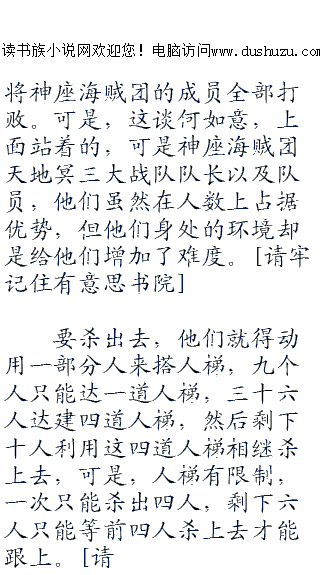 读书族小说网欢迎您！电脑访问www.dushuzu.com
将神座海贼团的成员全部打
败。可是，这谈何如意，上
面站着的，可是神座海贼团
天地冥三大战队队长以及队
员，他们虽然在人数上占据
优势，但他们身处的环境却
是给他们增加了难度。[请牢
记住有意思书院]
要杀出去，他们就得动
用一部分人来搭人梯，九个
人只能达一道人梯，三十六
人达建四道人梯，然后剩下
十人利用这四道人梯相继杀
上去，可是，人梯有限制，
一次只能杀出四人，剩下六
人只能等前四人杀上去才能
跟上。[请